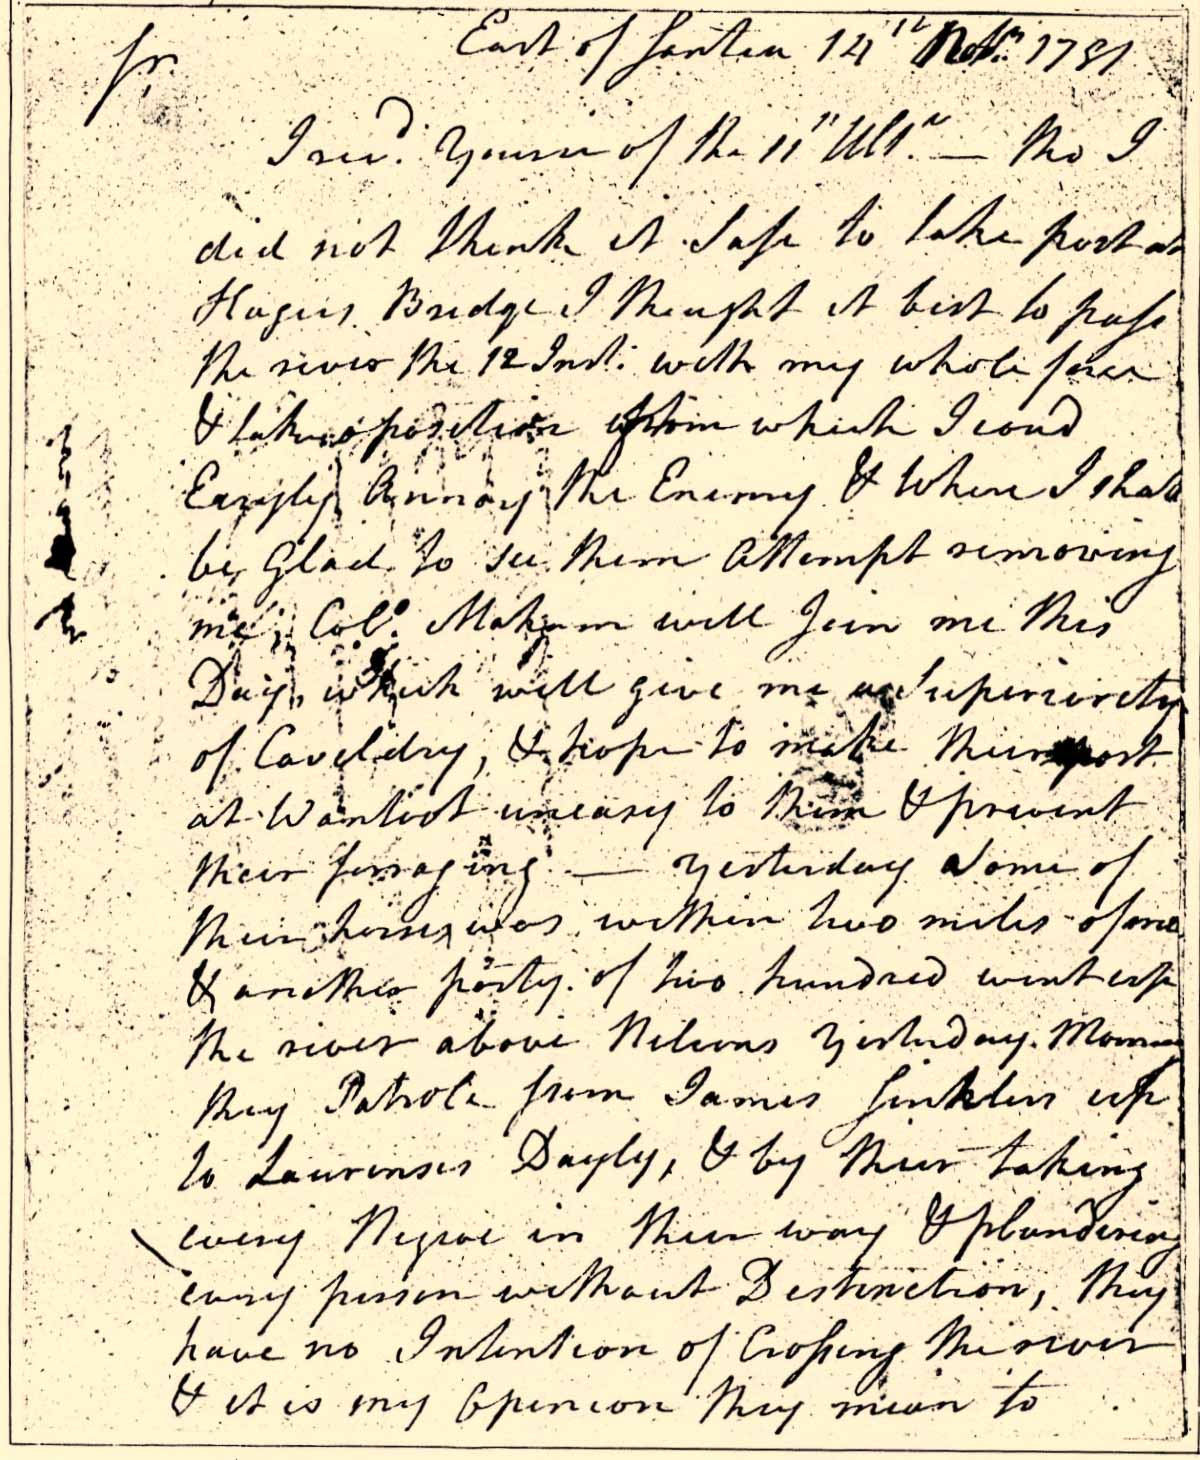 East of Santee 14th Novr. 1781
Sr.
I recd. Yours of the 11th Ulto. — tho I
did not think it Safe to take post at
Hugers Bridge I thought it best to pass
the river the 12 Inst: with my whole force
& take a position from which I coud
Easyly Annoy the Enemy & Where I shall
be Glad to see them Attempt removing
me, Colo. Maham will Join me this
Day, which will give me a Superiority
of Caveldry, & hope to make their post
at Wantoot uneasy to them & prevent
their forraging — Yesterday Some of
their horse, was within two miles of me
& another party of two hundred went up
the river above Nelsons Yesterday Morning
they Patrole from James Sinklers up
to Laurenses Dayly, & by their taking
every Negroe in their way & plundering
every person without Destinction, they
have no Intention of Crossing the river
& it is my Opinion they mean to